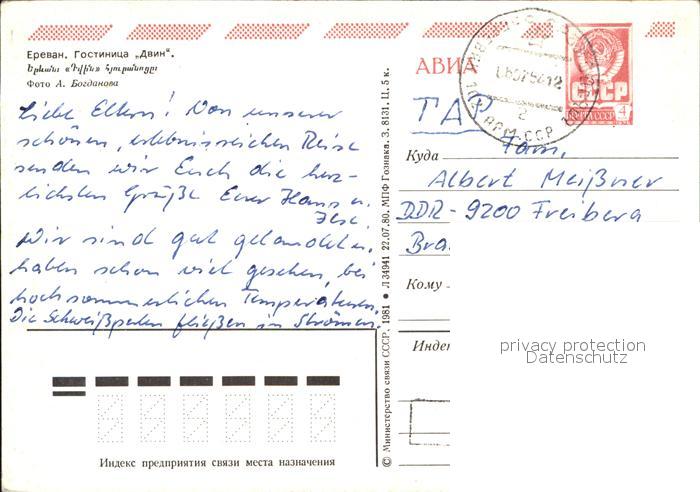 Ереван. Гостиница „Двин“.
Երևան: «Դվին» հյուրանոցը
Фото А. Богданова
Liebe Eltern! Von unserer
schönen, erlebnisreichen Reise
senden wir Euch die herz-
lichsten Grüße Euer Hans u.
Ilse.
Wir sind gut gelandet u.
haben schon viel gesehen, bei
hochsommerlichen Temperaturen.
Die Schweißperlen fließen in Strömen.
Индекс предприятия связи места назначения
© Министерство связи СССР. 1981 ● Л 34941 22.07.80. МПФ Гознака. З. 8131. Ц. 5 к.
АВИА
СССР
ПОЧТА СССР 4
АРМ.ССР
2
ГДР
Куда
Fam.
Albert Meißner
DDR - 9200 Freiberg
Bra
Кому
Индек
privacy protection
Datenschutz